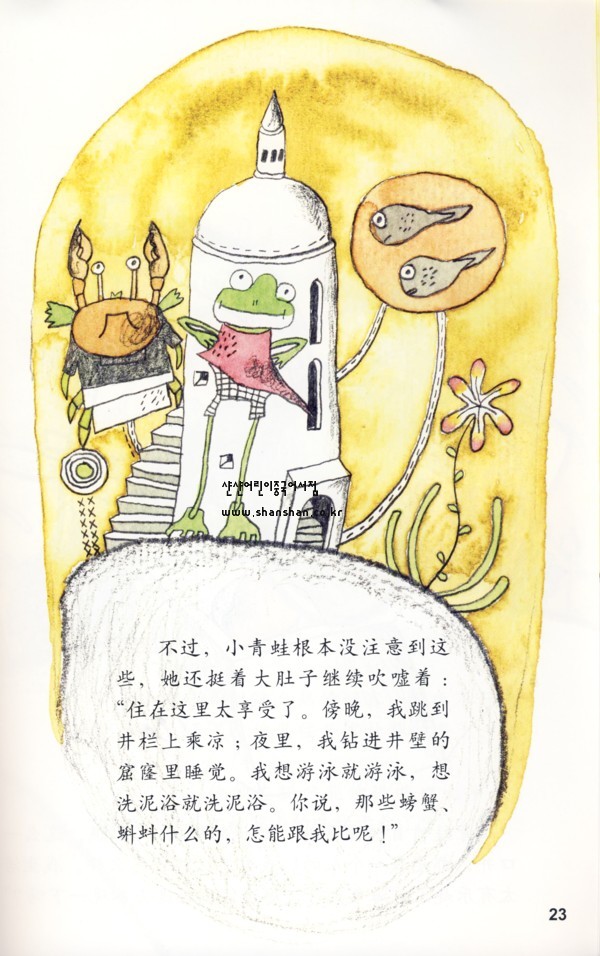 샨샨어린이중국어서점
www.shanshan.co.kr
不过，小青蛙根本没注意到这
些，她还挺着大肚子继续吹嘘着：
“住在这里太享受了。傍晚，我跳到
井栏上乘凉；夜里，我钻进井壁的
窟窿里睡觉。我想游泳就游泳，想
洗泥浴就洗泥浴。你说，那些螃蟹、
蝌蚪什么的，怎能跟我比呢！”
23